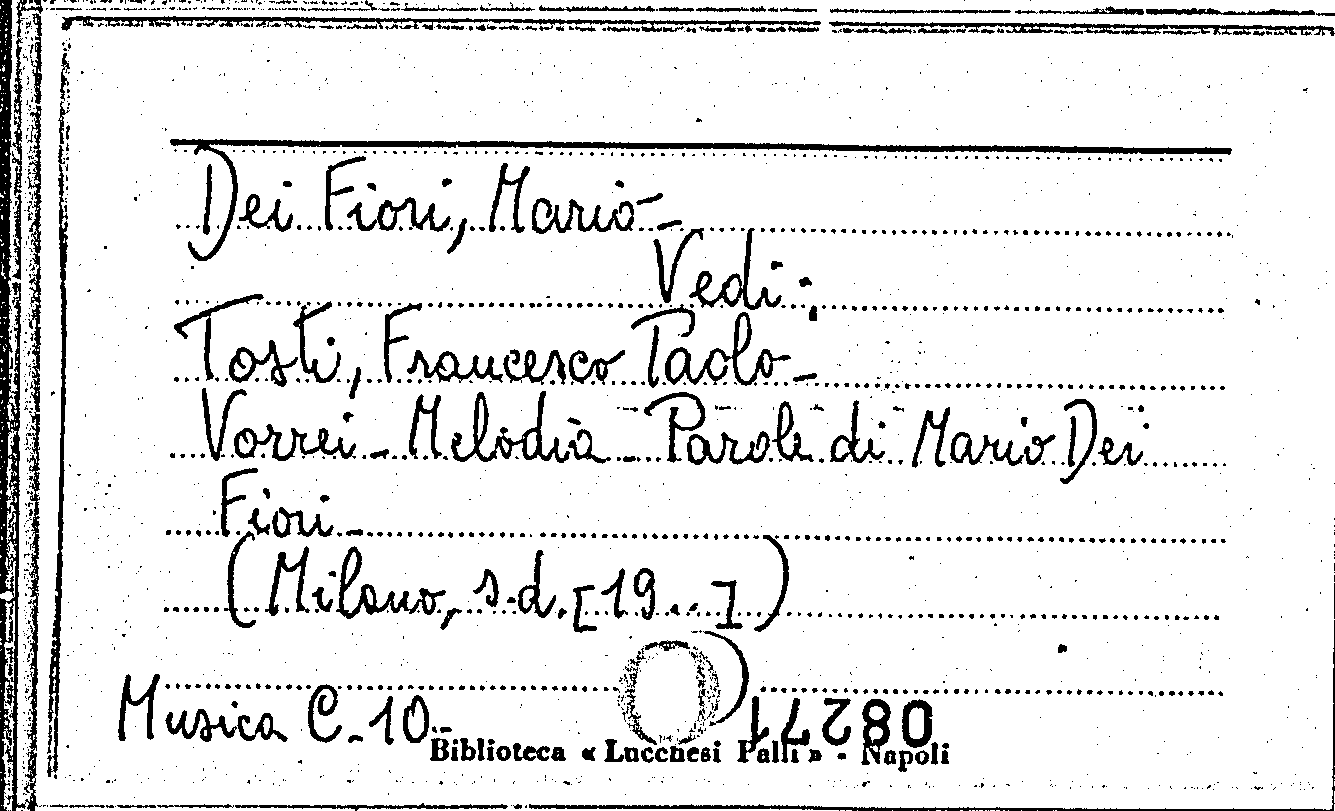 Dei Fiori, Mario -
Vedi:
Tosti, Francesco Paolo -
Vorrei - Melodia - Parole di Mario Dei
Fiori -
(Milano, s.d. [19..])
Musica C. 10.-
08271
Biblioteca « Lucchesi Palli » - Napoli